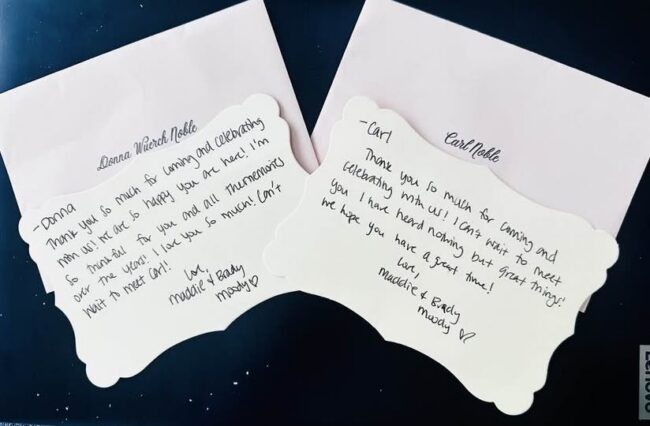 Donna Wuerch Noble
-Donna
Thank you so much for coming and celebrating
with us! We are so happy you are here! I'm
so thankful for you and all Thurmemories
over the years! I love you so much! Can't
wait to meet Carl!
Love,
Maddie & Brady
Moody ♡
Carl Noble
-Carl
Thank you so much for coming and
celebrating with us! I can't wait to meet
you I have heard nothing but great things!
We hope you have a great time!
Love,
Maddie & Brady
Moody ♡
Lenovo